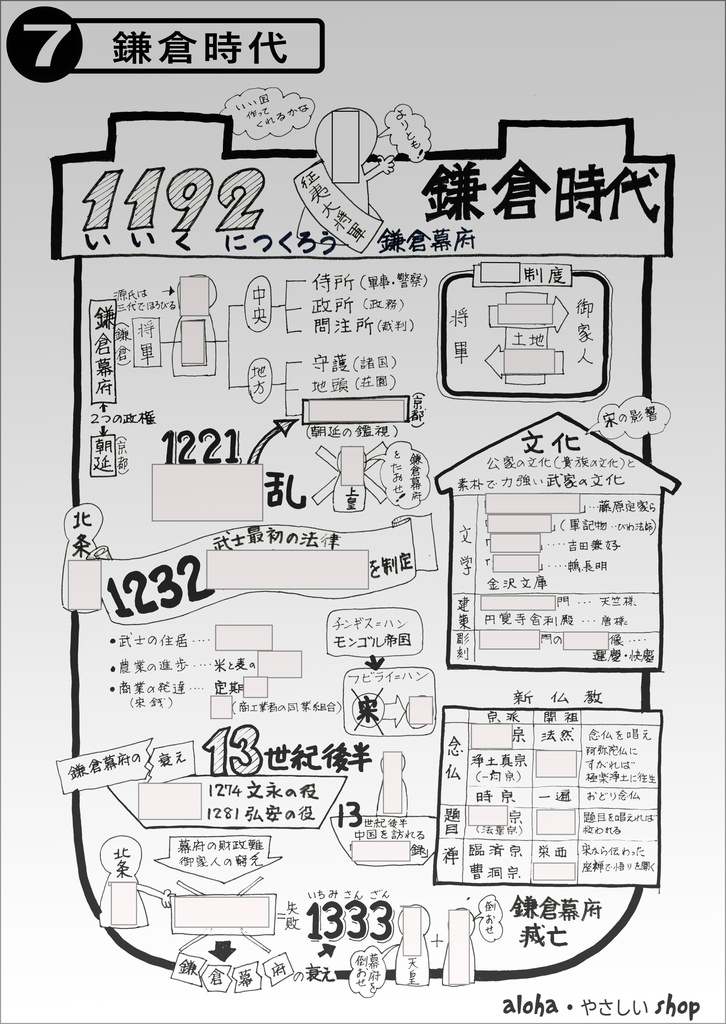 7
鎌倉時代
いい国
作って
くれるかな
よりとも！
征夷大将軍
1192
鎌倉時代
いいくにつくろう 鎌倉幕府
源氏は
三代でほろびる
鎌倉幕府
(鎌倉)
将軍
中央
侍所（軍事・警察）
政所（政務）
問注所（裁判）
地方
守護（諸国）
地頭（荘園）
(京都)
(朝廷の鑑視)
2つの政権
朝廷
(京都)
制度
将軍
土地
御家人
1221
乱
上皇
鎌倉幕府
をたおせ！
宋の影響
文化
公家の文化（貴族の文化）と
素朴で力強い武家の文化
文学
」…藤原定家ら
」（軍記物…びわ法師）
」……吉田兼好
」……鴨長明
金沢文庫
建築
門…天竺様
円覚寺舎利殿…唐様
彫刻
門の 像……
運慶・快慶
北条
武士最初の法律
1232
を制定
•武士の住居‥‥
•農業の進歩…米と麦の
•商業の発達…定期
(宋銭)
(商工業者の同業組合)
チンギス＝ハン
モンゴル帝国
フビライ＝ハン
宋
新仏教
宗派 開祖
念仏
宗 法然 念仏を唱え
阿弥陀仏に
すがれば
極楽浄土に往生
浄土真宗
(一向宗)
時宗 一遍 おどり念仏
題目
宗
(法華宗)
題目を唱えれば
救われる
禅
臨済宗 栄西
曹洞宗
宋から伝わった
座禅で悟りを開く
鎌倉幕府の衰え
13世紀後半
1274 文永の役
1281 弘安の役
13世紀後半
中国を訪れる
北条
幕府の財政難
御家人の窮乏
=失敗
いちみさんざん
1333
鎌倉幕府の衰え
幕府を
倒おせ
天皇
+
倒おせ
鎌倉幕府
滅亡
aloha・やさしい shop